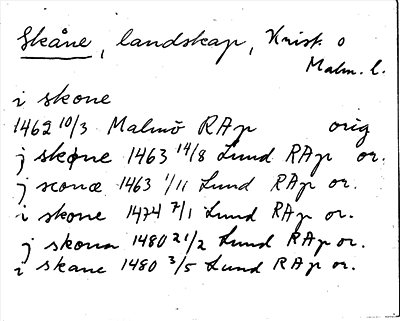 Skåne, landskap, Krist. o
Malm. l.
i skone
1462 10/3 Malmö RAp orig
j skøne 1463 14/8 Lund RAp or.
j sconæ 1463 1/11 Lund RAp or.
i skone 1474 7/1 Lund RAp or.
j skona 1480 21/2 Lund RAp or.
i skane 1480 3/5 Lund RAp or.